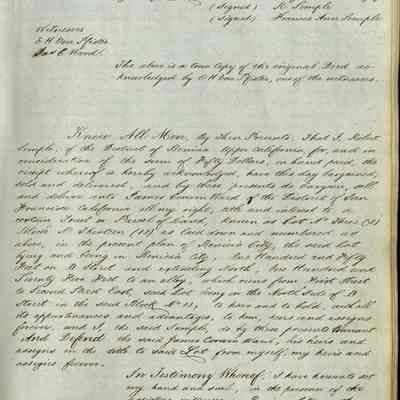 (Signed) R. Semple
(Signed) Frances Ann Semple
Witnesses
E H Von Pfister
C. Ward.
The above is a true copy of the original Deed ac-
knowledged by E H Von Pfister, one of the witnesses.
Know All Men, By These Presents, That I, Robert
Semple, of the District of Benicia Upper California, for, and in
consideration of the sum of Fifty Dollars, in hand paid, the
receipt whereof is hereby acknowledged, have this day bargained,
sold and delivered, and by these presents do bargain, sell
and deliver unto James Cowin Ward of the District of San
Francisco California all my right, title and interest to a
certain Tract or Parcel of Land, known as Lot No
Block No Thirteen (13) as laid down and numbered as
above, in the present plan of Benicia City, the said lot
lying and being in Benicia City, One Hundred and Fifty
Feet on D Street and extending North, One Hundred and
Twenty Five Feet to an alley, which runs from First Street
to Second Street East, said Lot being on the North Side of D
Street in the said Block No 13, to have and to hold, with all
its appurtenances and advantages, to him, heirs and assigns
forever, and I, the said Semple, do by these presents Warrant
And Defend the said James Cowin Ward, his heirs and
assigns in the title to said Lot from myself, my heirs and
assigns forever.
In Testimony Whereof, I have hereunto set
my hand and seal, in the presence of the